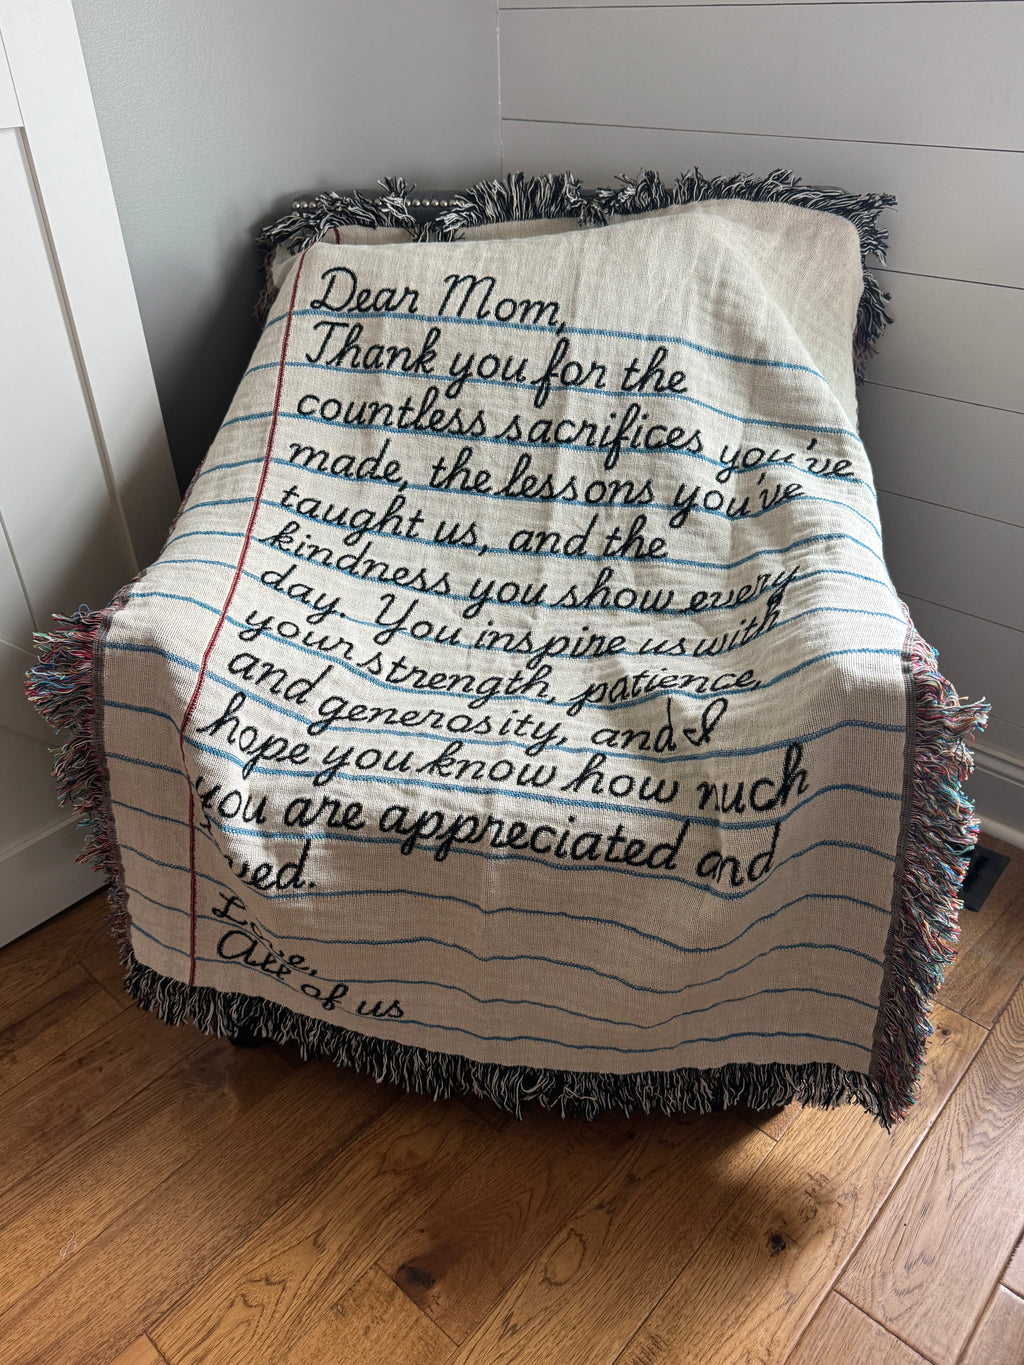 Dear Mom,
Thank you for the
countless sacrifices you've
made, the lessons you've
taught us, and the
kindness you show every
day. You inspire us with
your strength, patience,
and generosity, and I
hope you know how much
you are appreciated and
Love,
All of us